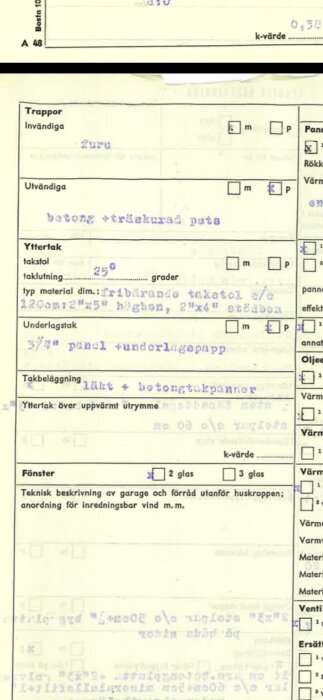 Bostn 10
A 48
k-värde
0,38
Trappor
Invändiga
x m p
furu
Utvändiga
m x p
betong +träskurad puts
Yttertak
takstol
m p
taklutning 25° grader
typ material dim.: fribärande takstol c/c
120cm: 2"x5" högben, 2"x4" stödben
Underlagstak
m x p
3/4" panel +underlagspapp
Takbeläggning
läkt + betongtakpannor
Yttertak över uppvärmt utrymme
k-värde
Fönster
x 2 glas 3 glas
Teknisk beskrivning av garage och förråd utanför huskroppen;
anordning för inredningsbar vind m.m.
Pann
Rökk
Värm
pann
effekt
annat
Oljee
Värm
Värm
Värm
Värmv
Varmv
Materi
Materi
Materi
Venti
Ersätt